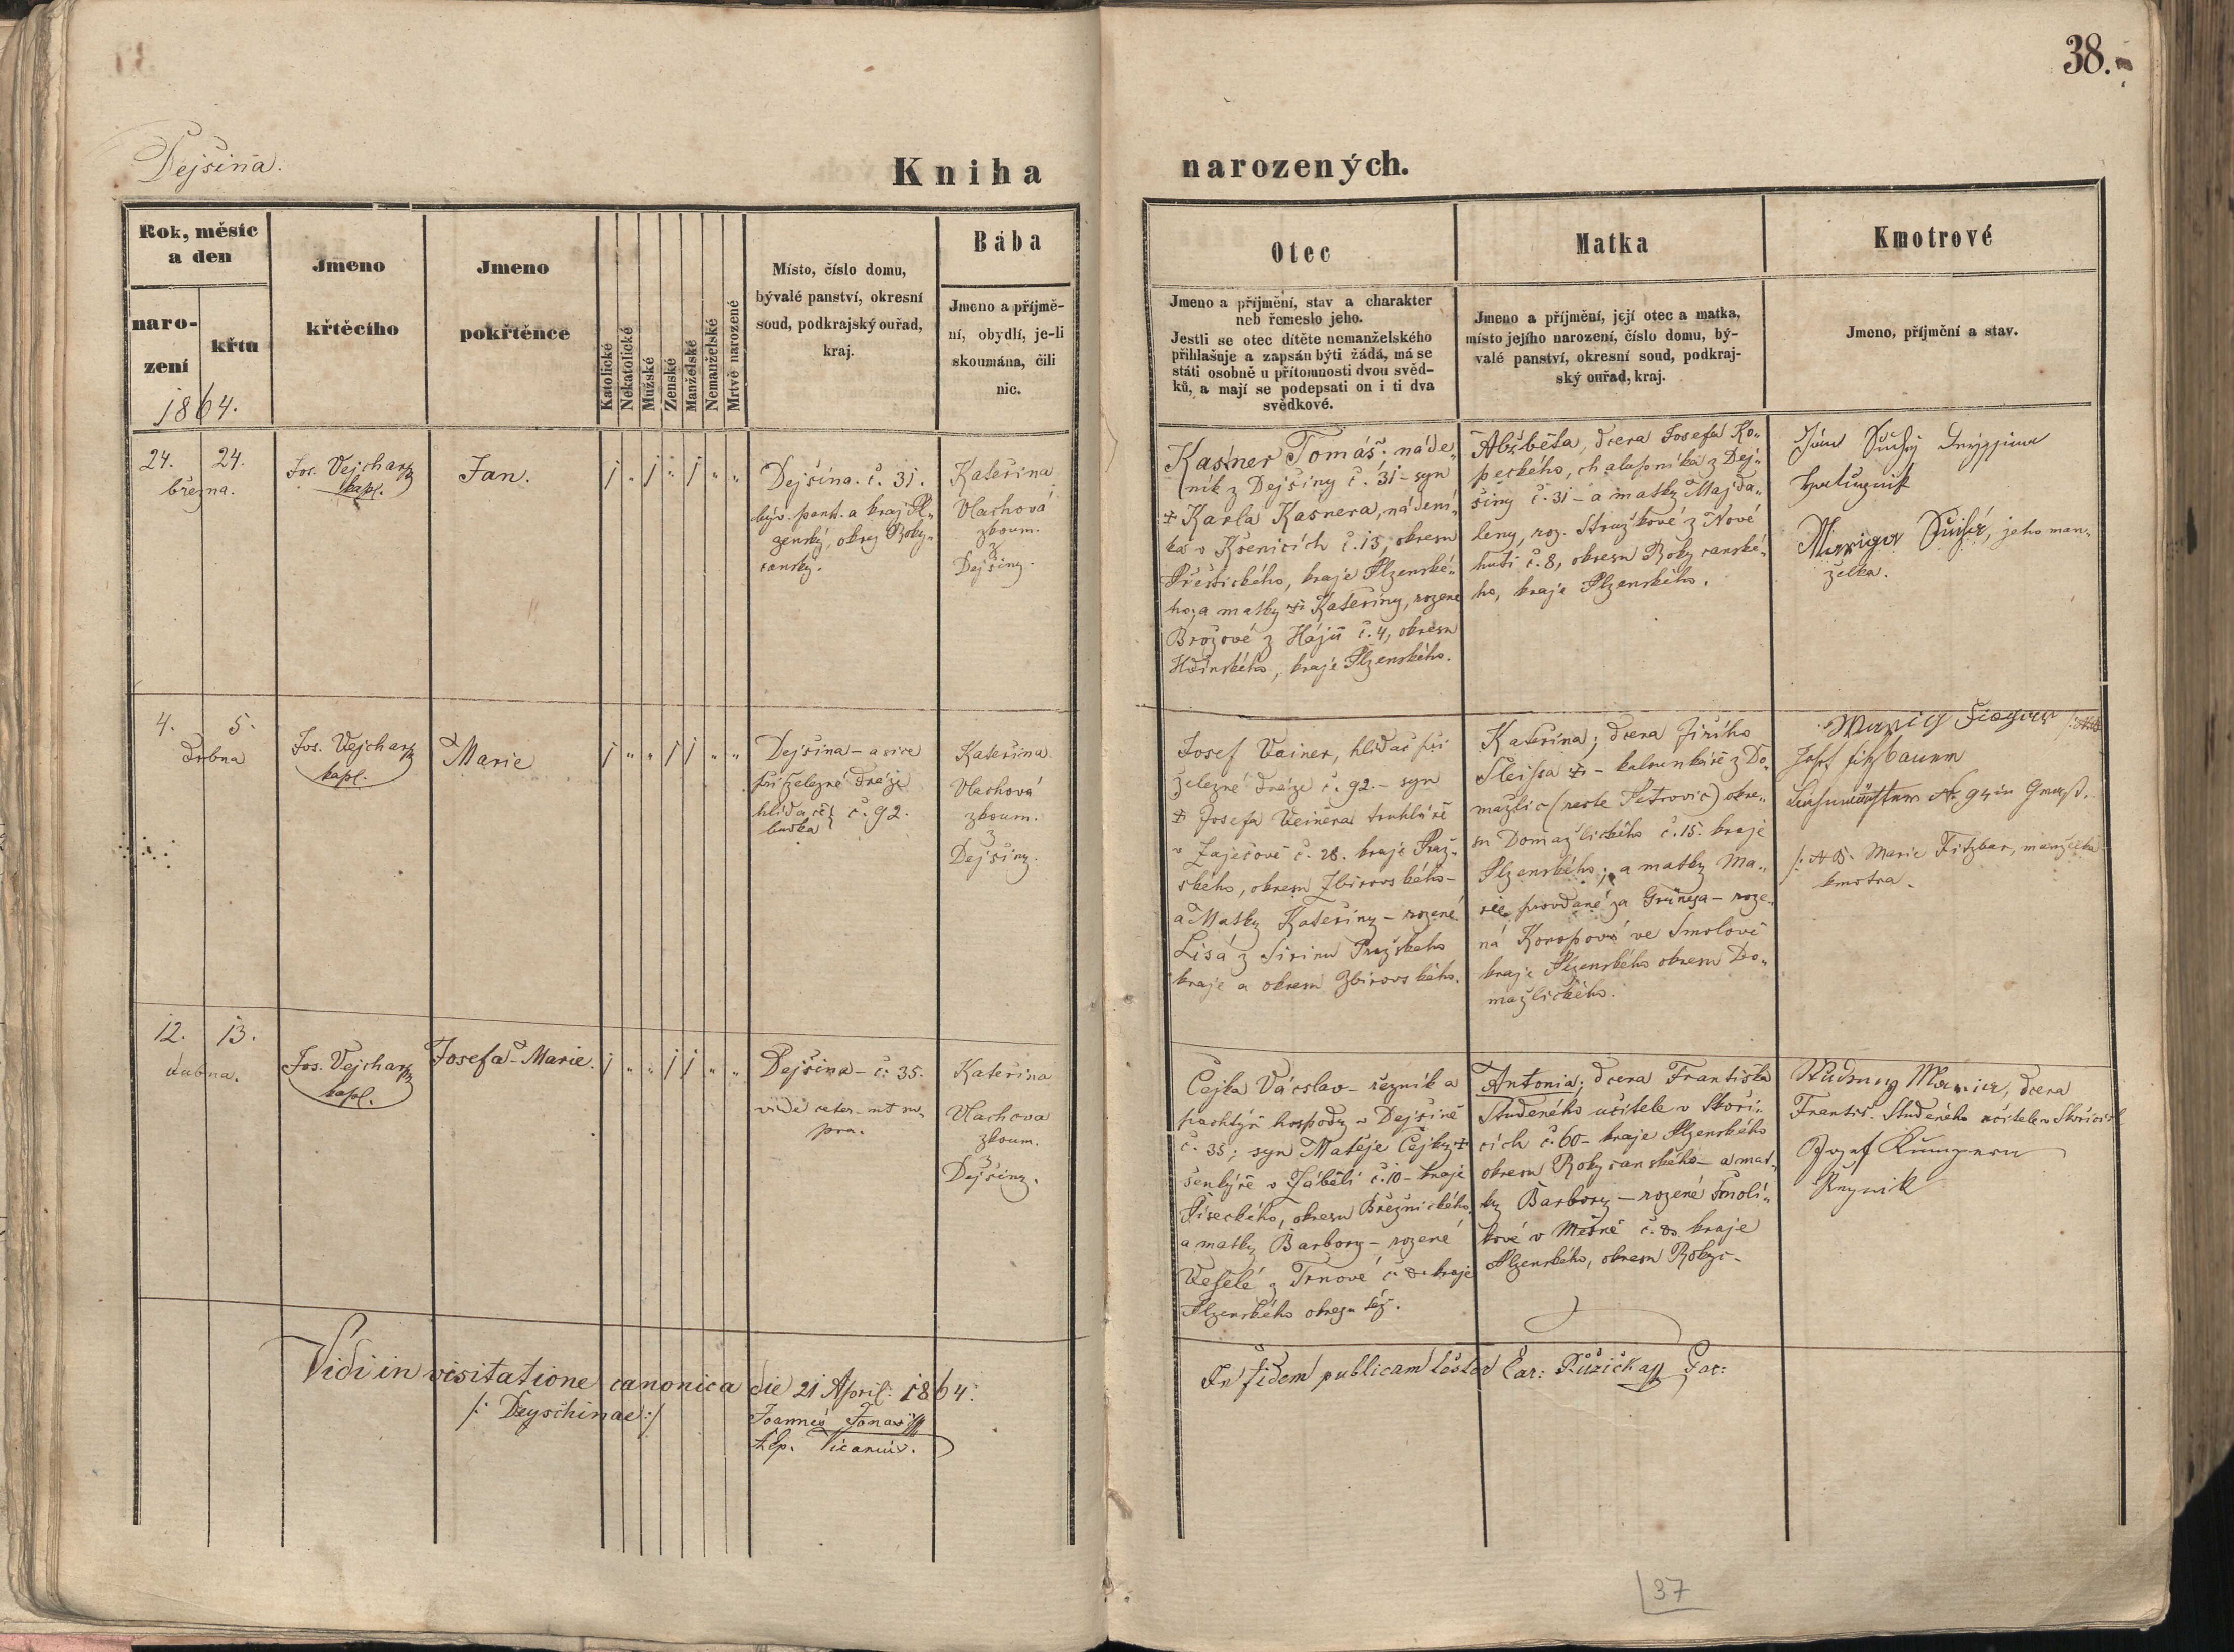 38.
Dejšina.
Kniha narozených.
Rok, měsíc
a den
naro-
zení
křtu
1864.
Jmeno
křtěcího
Jmeno
pokřtěnce
Katolické
Nekatolické
Mužské
Ženské
Manželské
Nemanželské
Mrtvě narozené
Místo, číslo domu,
bývalé panství, okresní
soud, podkrajský ouřad,
kraj.
Bába
Jmeno a příjmě-
ní, obydlí, je-li
skoumána, čili
nic.
Otec
Jmeno a příjmění, stav a charakter
neb řemeslo jeho.
Jestli se otec dítěte nemanželského
přihlašuje a zapsán býti žádá, má se
státi osobně u přítomnosti dvou svěd-
ků, a mají se podepsati on i ti dva
svědkové.
Matka
Jmeno a příjmění, její otec a matka,
místo jejího narození, číslo domu, bý-
valé panství, okresní soud, podkraj-
ský ouřad, kraj.
Kmotrové
Jmeno, příjmění a stav.
24. 24.
března.
Jos. Vejchar
kapl.
Jan.
j „ j „ j „ „
Dejšina. č. 31.
býv. panst. a kraj Pl„
zenský, okres Roky„
canský.
Kateřina
Vlachová
zkoum.
z
Dejšiny.
Kasner Tomáš; náde„
ník z Dejšiny č. 31 - syn
‡ Karla Kasnera, nádení„
ka v Křenicích č. 15, okresu
Přeštického, kraje Plzenské„
ho, a matky ‡ Kateřiny, rozené
Brožové z Hájů č. 4, okresu
kraje Plzenského.
Alžběta, dcera Josefa Ko„
peckého, chalupníka z Dej„
šiny č. 31 - a matky Majda„
leny, roz. Stružkové z Nové
huti č. 8, okresu Rokycanské„
ho, kraje Plzenského.
Jan Suchý
Suchá, jeho man„
želka.
4. 5.
dubna
Jos. Vejchar
kapl.
Marie
j „ „ j j „ „
Dejšina - a sice
při železné dráze
hlídačs.
budka č. 92.
Kateřina
Vlachová
zkoum.
z
Dejšiny.
Josef Vainer, hlídač při
železné dráze č. 92. - syn
‡ Josefa Veinera truhláře
v Zaječově č. 28. kraje Praž„
ského, okresu Zbirovského -
a Matky Kateřiny - rozené
Lisá z Pražského
kraje a okresu Zbirovského.
Kateřina; dcera Jiřího
‡ - z Do„
mažlic (neste Petrovic) okre„
su Domažlického č. 15. kraje
Plzenského; a matky Ma„
rie provdané za Grünesa - roze„
ná ve Smolově
kraje Plzenského okresu Do„
mažlického.
Josef Fitzbaum
Marie Fitzbar, manželka
kmotra.
12. 13.
dubna.
Jos. Vejchar
kapl.
Josefa - Marie.
j „ „ j j „ „
Dejšina - č. 35.
vide ceter. ut su„
pra.
Kateřina
Vlachova
zkoum.
z
Dejšiny.
Čejka Václav - řezník a
pachtýř hospody v Dejšině
č. 35; syn Matěje Čejky ‡
šenkýře v Záběli č. 10 - kraje
Píseckého, okresu Březnického,
a matky Barbory - rozené
Veselé z Trnové č. kraje
Plzenského okresu též.
Antonia; dcera Františka
Studeného učitele v Skoři„
cích č. 60 - kraje Plzenského
okresu Rokycanského - a mat„
ky Barbory - rozené Smolí„
kové v Mešně č. kraje
Plzenského, okresu Rokyc -
Studeny Marie, dcera
Františ. Studeného učitele v Skořicích
Josef
Vidi in visitatione canonica die 21 April: 1864.
/: Deyschinae :/
Joannes Jonas
A.Ep. Vicarius.
In fidem publicam Car: Růžička Par:
37